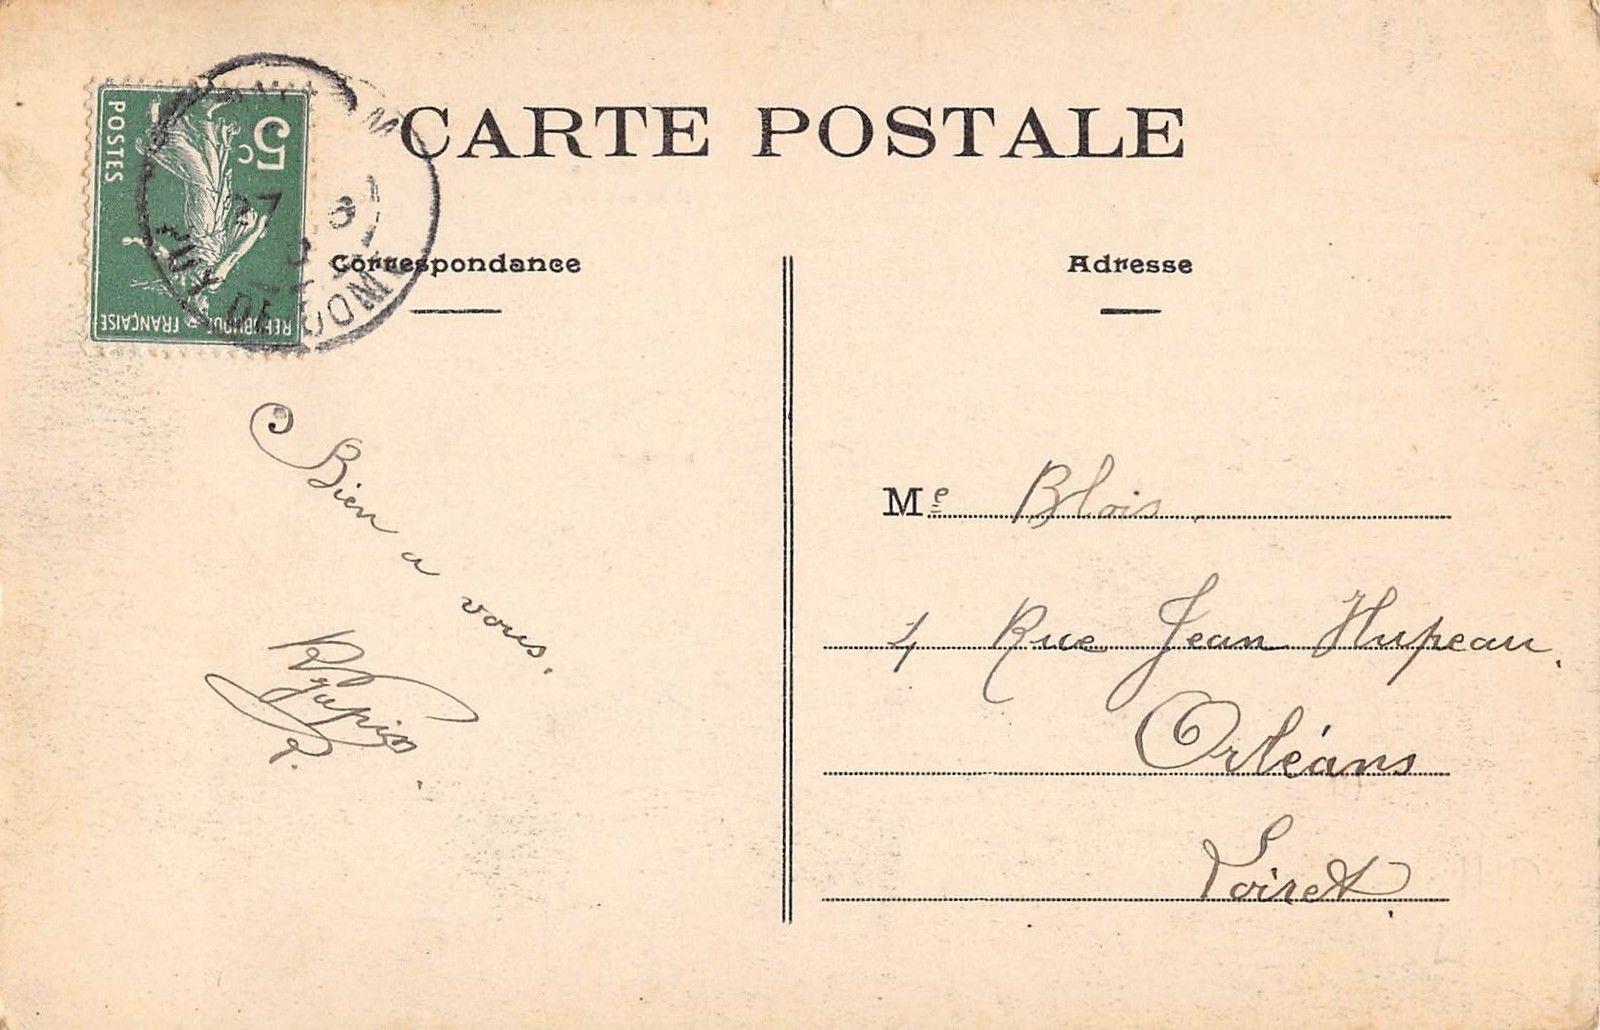 CARTE POSTALE
5c
POSTES
REPUBLIQUE FRANÇAISE
PUY DE
Correspondance
Adresse
Bien a vous.
Me Blois
4 Rue Jean Hupeau.
Orléans
Loiret.